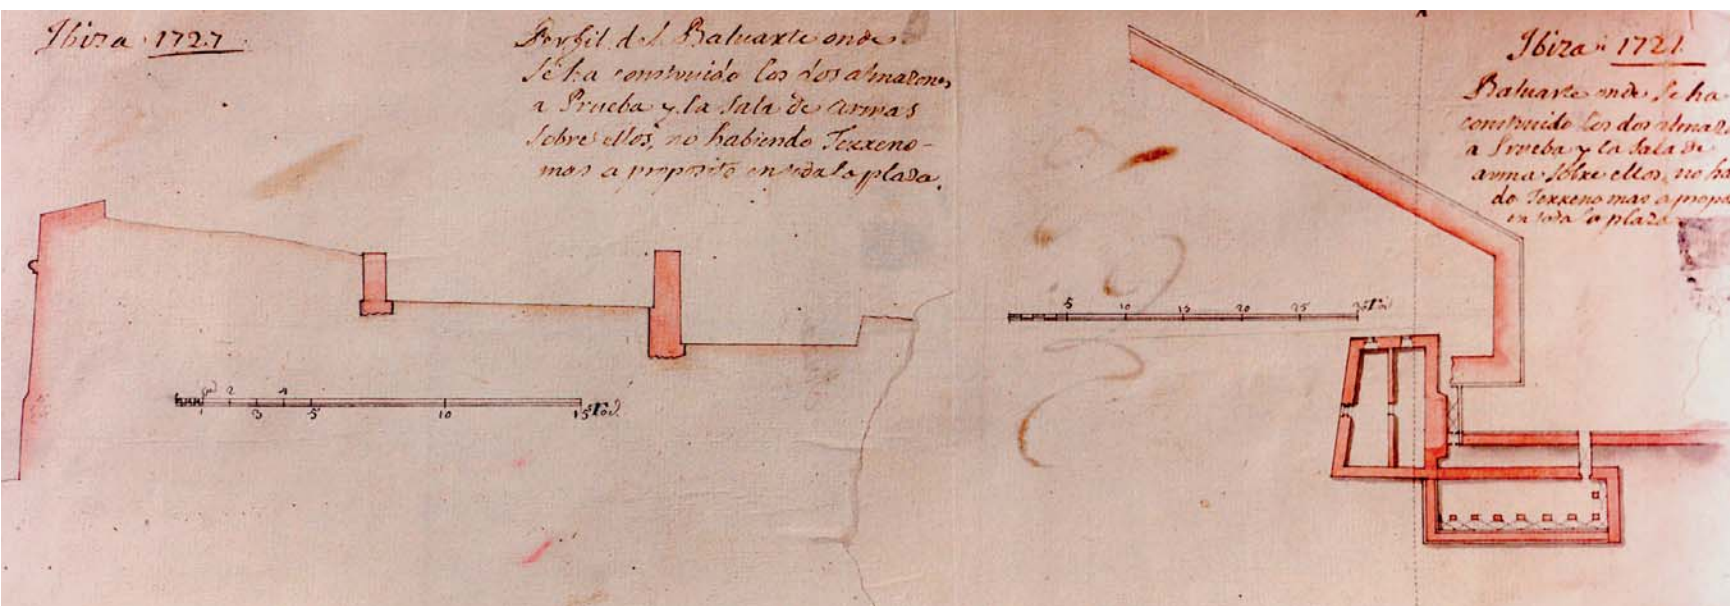 Ibiza. 1727.
Perfil del Baluarte onde
se ha construido los dos almazenes
a Prueba y la Sala de armas
sobre ellos, no habiendo Terreno
mas a proposito en toda la plaza.
2 4
1 3 5 10 15 Tod.
Ibiza 1727.
Baluarte onde se ha
construido los dos almaz
a Prueba y la Sala de
arma sobre ellos, no ha
do Terreno mas a propo
en toda la plaza
5 10 15 20 25